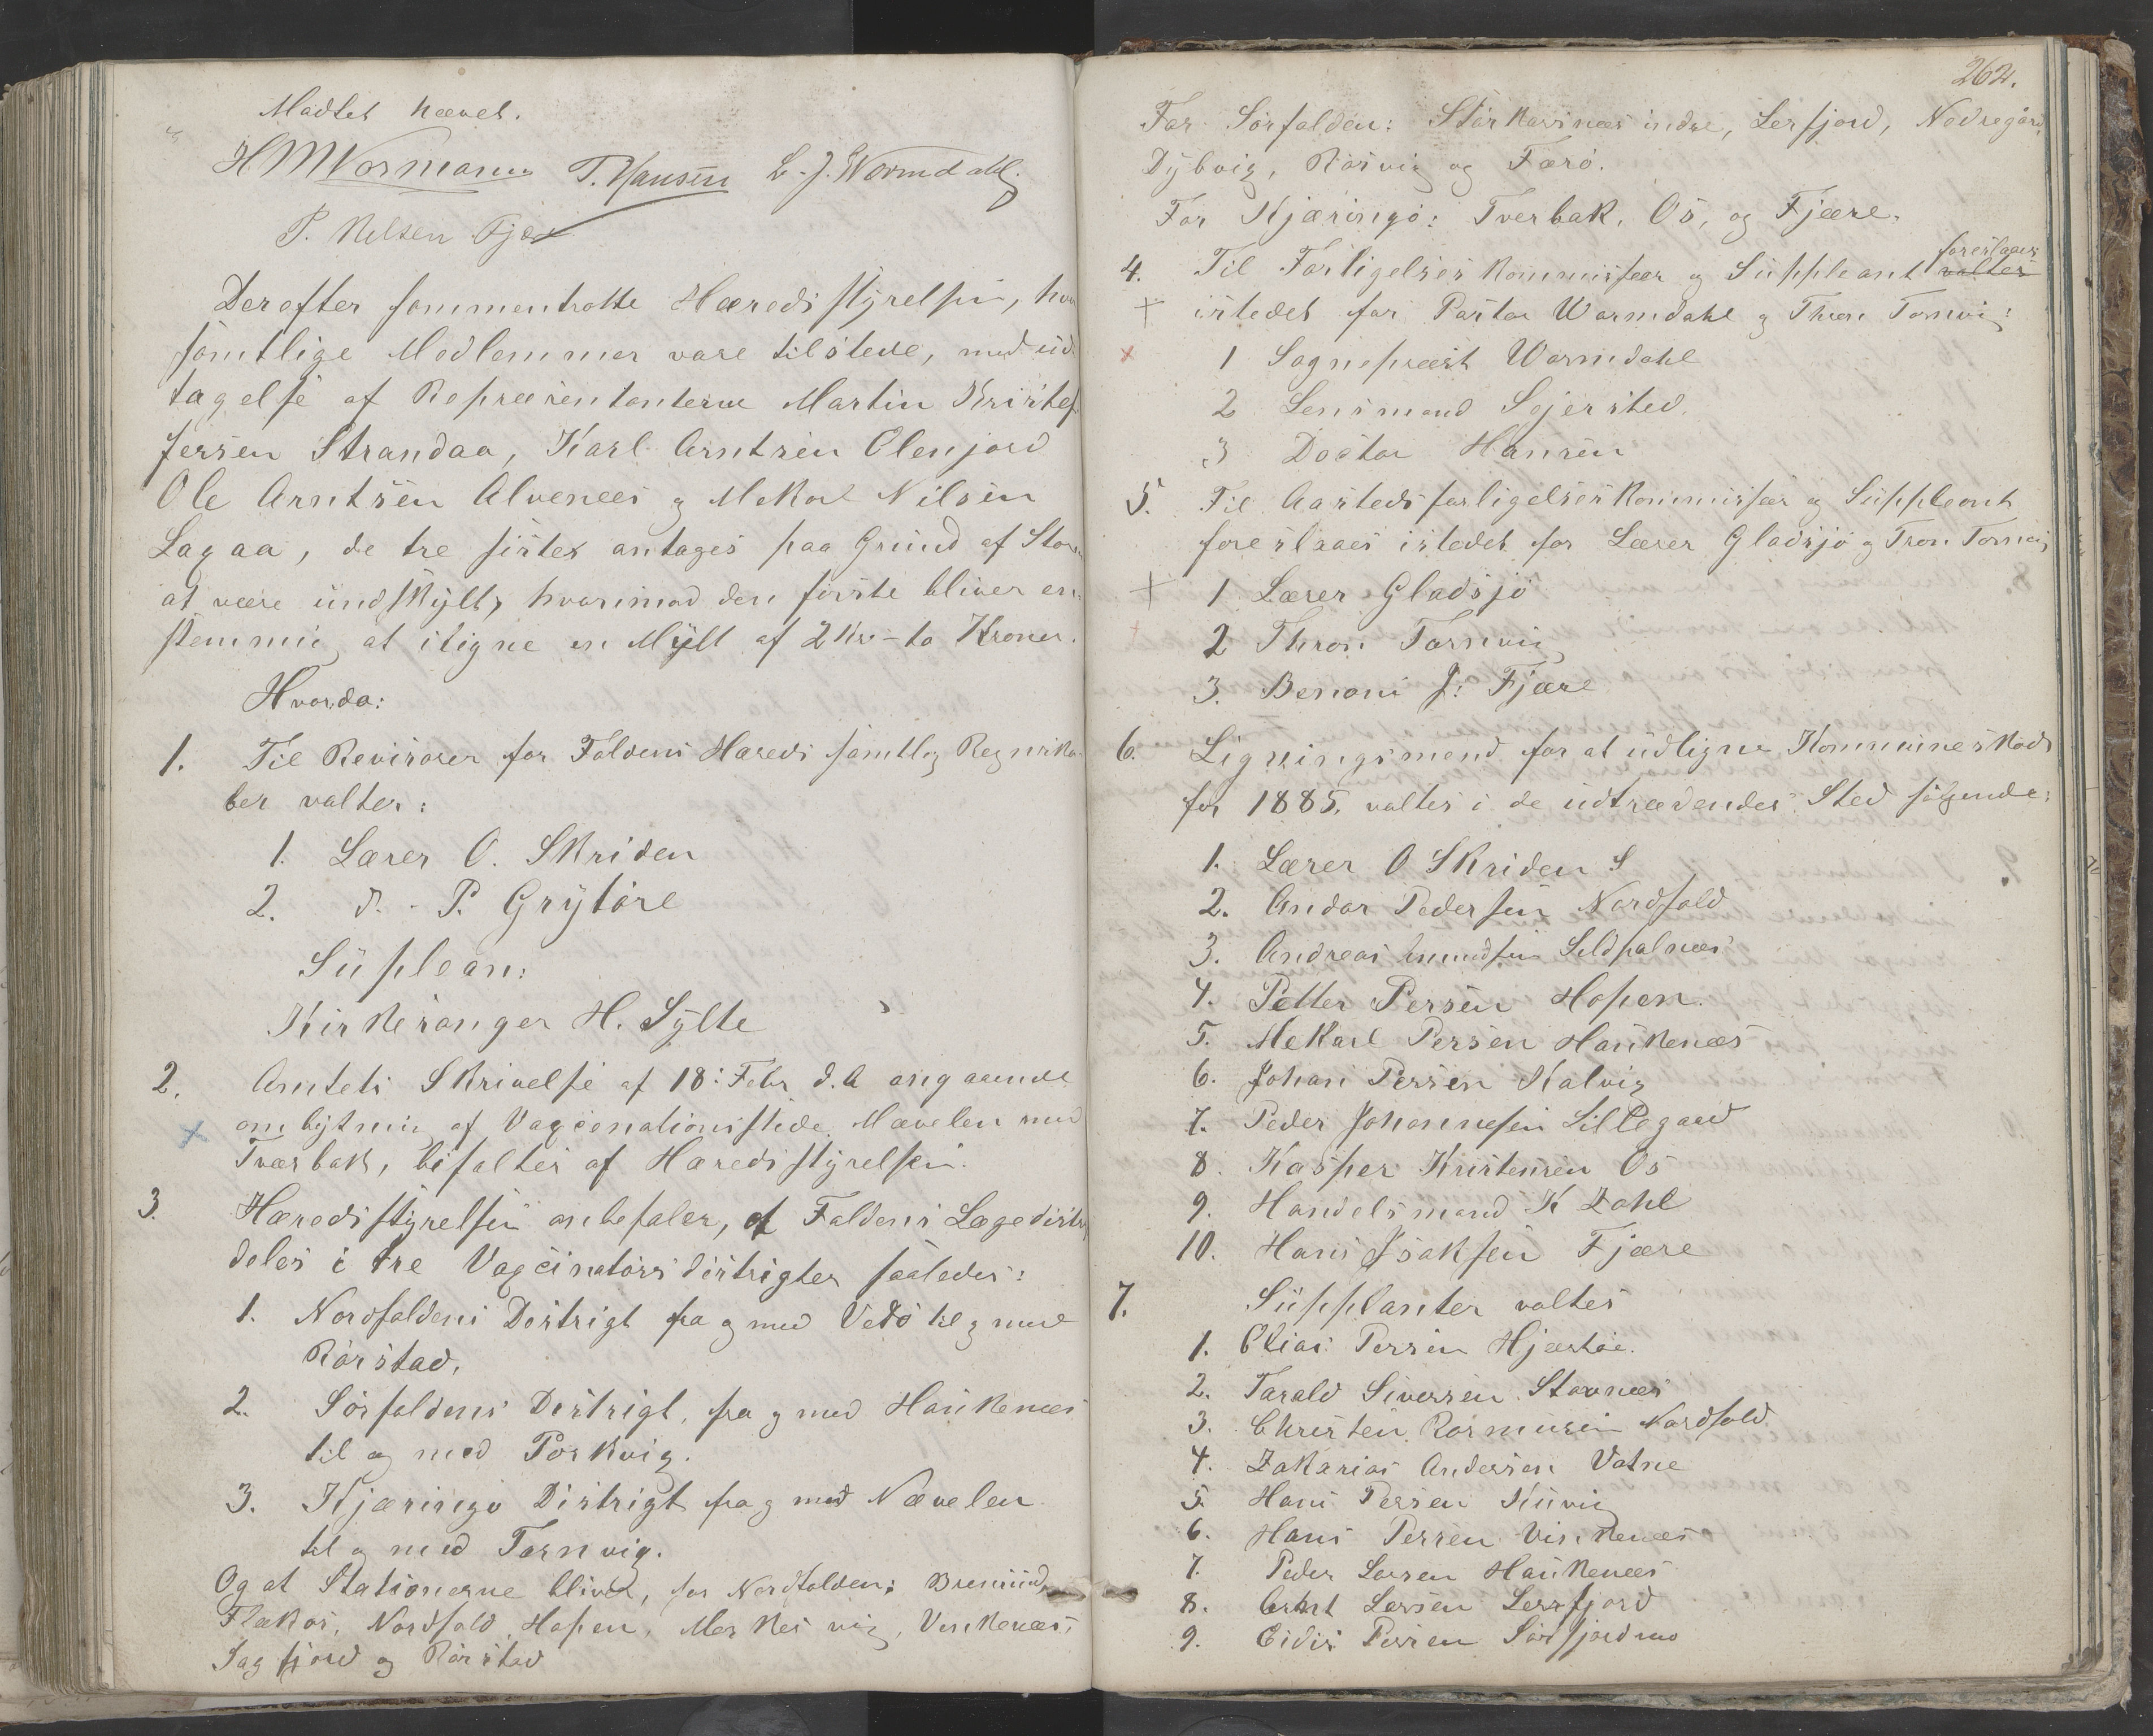 Mødtet hævet.
H M Normann T. Hansen L. J. Wormdahl
P. Nilsen Fjær
Derefter sammentratte Hæredsstyrelsen, hvor
samtlige Medlemmer vare tilstede, med und-
tagelse af Repræsentanterne Martin Kristof-
fersen Strandaa, Karl Arntsen Elvnjord
Ole Arntsen Alvenæs og Mekal Nilsen
Lagaa, de tre sister antages paa Grund af Storm
at være undskylt, hvorimod den første bliver en-
stemmig at iligne en Mylt af 2 Kr - to Kroner.
Hvorda:
1. Til Revisorer for Foldens Hæreds samtlig Regnska-
ber valtes:
1. Lærer O. Skriden
2. d. - P. Grytøre
Suplean:
Kirkesanger H. Sylte
2. Amtets Skrivelse af 18: Febr d. A angaaende
ombytning af Vaccinationsstede Nævelen med
Tværbak, bifaltes af Hæredsstyrelsen.
3. Hæredsstyrelsen anbefaler, at Foldens Lægedistr
deles i tre Vaccinatørsdistrigter saaledes:
1. Nordfoldens Distrigt fra og med Vedø til og med
Rørstad.
2. Sørfoldens Distrigt, fra og med Haukenæs
til og med Pørkvig.
3. Kjæringø Distrigt fra og med Nævelen
til og med Tørnvig.
Og at Stationerne bliver, for Nordfolden: Bremsund,
Flakos, Nordfold, Hopen, Merkesvig, Vinkenæs,
Sagfjord og Rørstad
262.
For Sørfolden: Størkersnæs indre, Lerfjord, Nedregård,
Dybvig, Røsvig og Færø.
For Kjæringø: Tverbak, Os, og Fjære.
foreslaaes
4. Til Forligelseskommissær og Suppleant valtes
istedet for Pastor Wormdahl og Thron Tørnvig:
1 Sognepræst Wormdahl
2 Lensmand Sejersted.
3 Doctor Hansen
5. Til Aastedsforligelseskommissær og Suppleant
foreslaaes istedet for Lærer Gladsjø og Tron Tørnvig
1 Lærer Gladsjø
2 Thron Tørnvig
3. Benoni J: Fjære
6. Ligningsmend for at udligne Kommuneskat
for 1885, valtes i de udtrædendes Sted følgende:
1. Lærer O Skriden S
2. Andor Pedersen Nordfold
3. Andreas Amundsen Sildhalnæs
4. Petter Persen Hopen.
5. Mekael Persen Haukenæs
6. Johan Persen Kalvig
7. Peder Johannesen Lillegaard
8. Kasper Kristensen Os
9. Handelsmand K Zahl
10. Hans Isaksen Fjære
7. Supplanter valtes
1. Elias Persen Hjærtøe.
2. Tarald Siversen Stavnæs
3. Christen Rasmusen Nordfold
4. Zakarias Andersen Vatne
5. Hans Persen Kuvig
6. Hans Persen Vinkenæs
7. Peder Larsen Haukenæs
8. Arnt Larsen Lerfjord
9. Eidis Persen Sørfjordmo